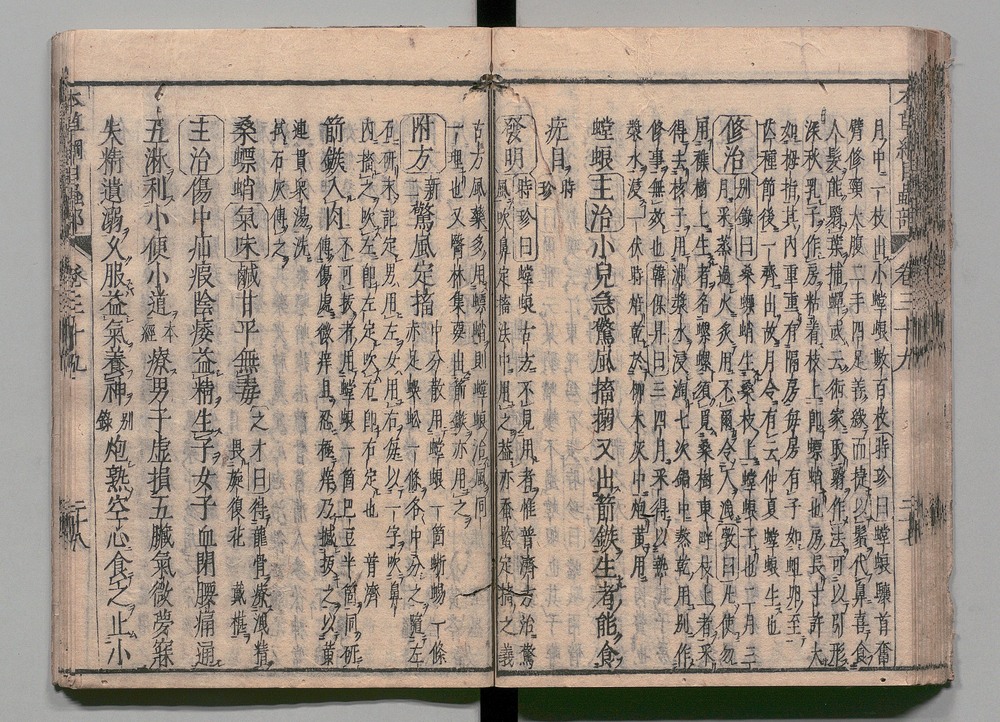 月中一枝出小螳螂數百枚時珍曰螳螂驤首奮
臂修頸大腹二手四足善緣而捷以鬚代鼻喜食
人髮能翳葉捕蟬或云術家取翳作法可以引形
深秋乳子作房粘着枝上即螵蛸也房長寸許大
如拇指其內重重有隔房每房有子如蛆卵至
芒種節後一齊出故月令有云仲夏螳螂生也
修治別錄曰桑螵蛸生桑枝上螳螂子也二月三
月采蒸過火炙用不爾令人洩斅曰凡使勿
用雜樹上生者名螺螺須覓桑樹東畔枝上者采
得去核子用沸漿水浸淘七次鍋中熬乾用別作
修事無效也韓保昇曰三四月采得以熱
漿水浸一伏時焙乾於柳木灰中炮黃用
螳螂主治小兒急驚風搐搦又出箭鏃生者能食
疣目時珍
發明時珍曰螳螂古方不見用者惟普濟方治驚
風吹鼻定搐法中用之蓋亦蠶蠍定搐之義
古方風藥多用螵蛸則螳螂治風同
一理也又醫林集要出箭鏃亦用之
附方新二驚風定搐中分散用螳螂一箇蜥蜴一條
赤足蜈蚣一條各中分之隨左
右研末記定男用左女用右每以一字吹鼻
內搐之吹左即左定吹右即右定也 普濟
箭鏃入肉不可拔者用螳螂一箇巴豆半箇同研
傅傷處微痒且忍極痒乃撼拔之以黃
連貫衆湯洗
拭石灰傅之
桑螵蛸氣味鹹甘平無毒之才曰得龍骨療洩精
畏旋復花 戴椹
主治傷中疝瘕陰痿益精生子女子血閉腰痛通
五淋利小便水道本經療男子虛損五臟氣微夢寐
失精遺溺久服益氣養神別錄炮熟空心食之止小
本草綱目蟲部
卷三十九
二十八